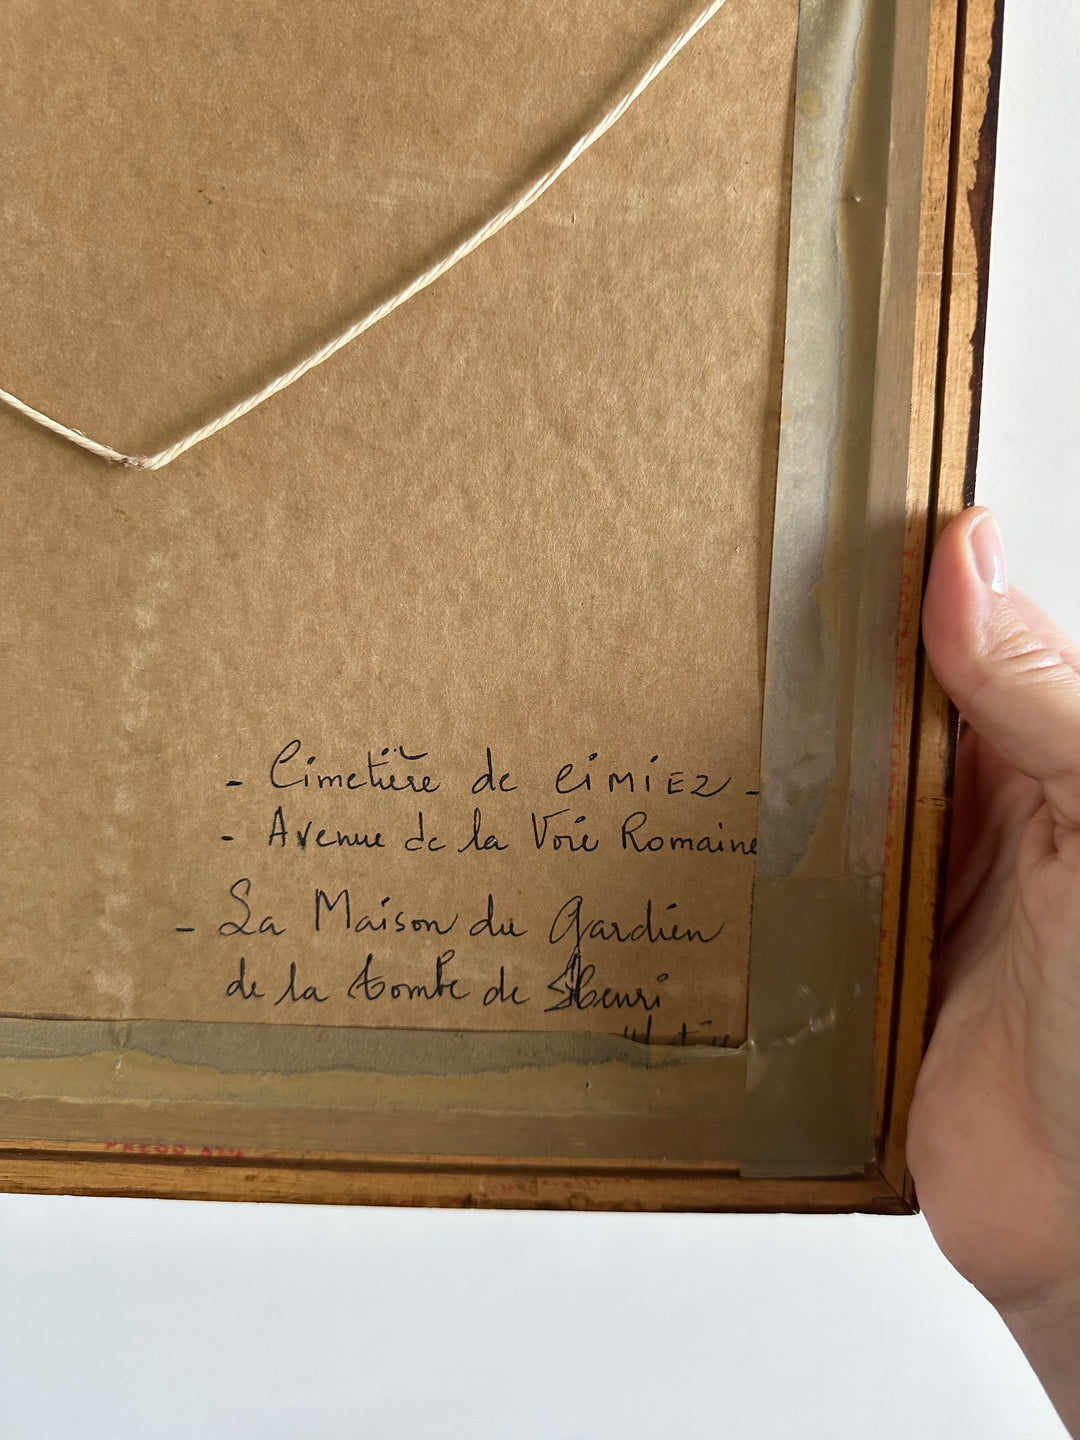 - Cimetière de CiMiEZ -
- Avenue de la Voie Romaine
- La Maison du Gardien
de la tombe de Henri